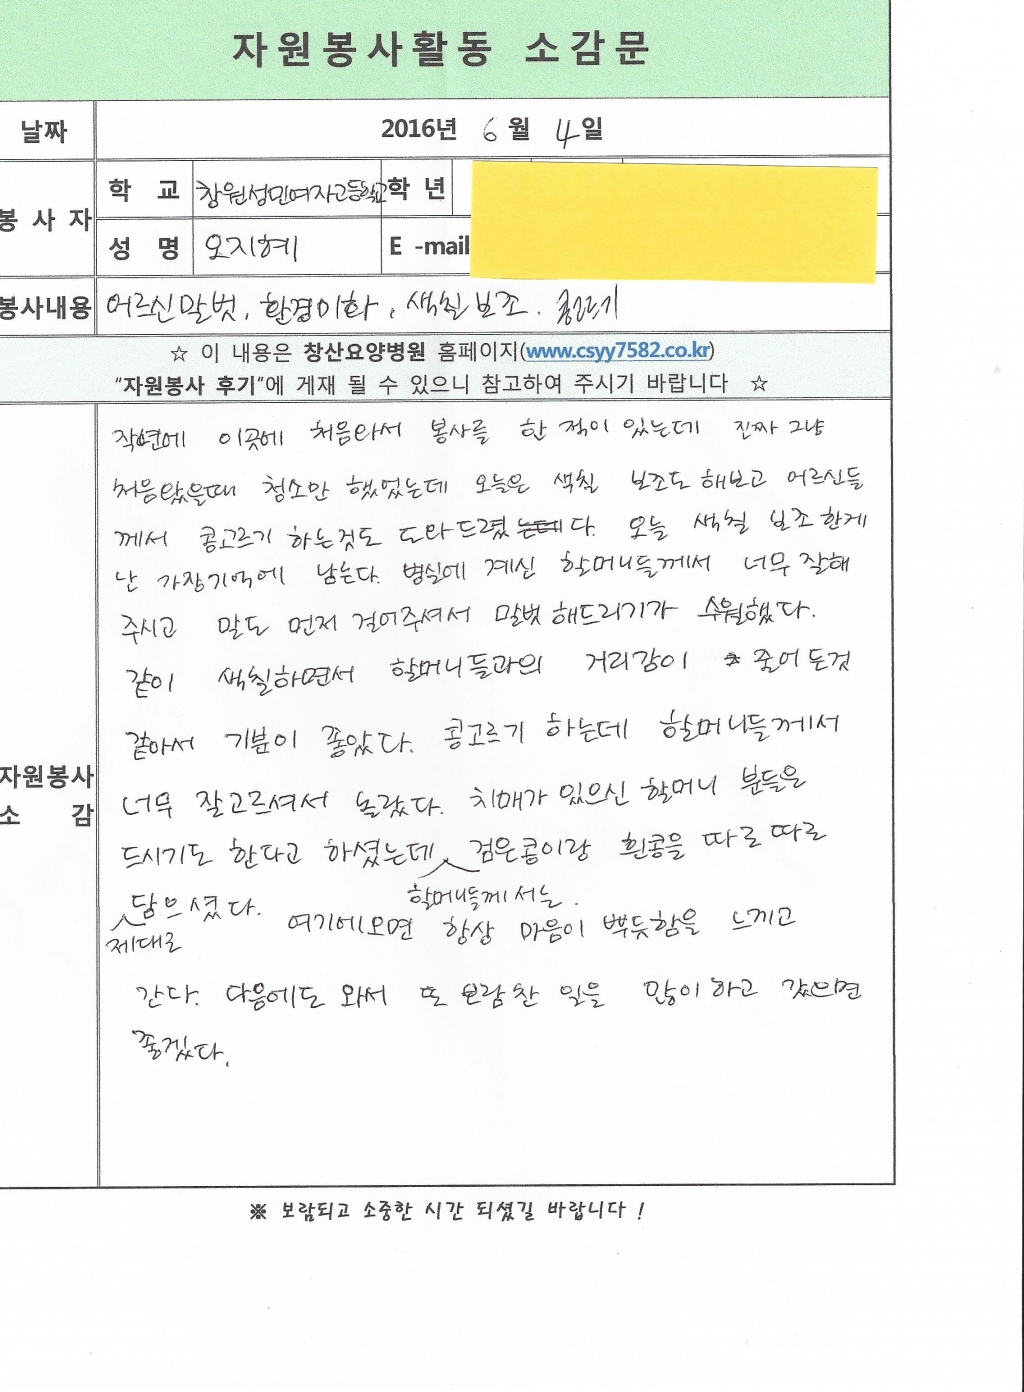 자원봉사활동 소감문
날짜 2016년 6월 4일
봉사자 학교 창원성민여자고등학교 학년
성명 오지혜 E-mail
봉사내용 어르신말벗, 환경미화, 색칠보조, 콩고르기
☆ 이 내용은 창산요양병원 홈페이지(www.csyy7582.co.kr)
"자원봉사 후기"에 게재 될 수 있으니 참고하여 주시기 바랍니다 ☆
자원봉사 소감
작년에 이곳에 처음와서 봉사를 한 적이 있는데 진짜 그냥
처음왔을때 청소만 했었는데 오늘은 색칠 보조도 해보고 어르신들
께서 콩고르기 하는것도 도와드렸다. 오늘 색칠 보조한게
난 가장기억에 남는다. 병실에 계신 할머니들께서 너무 잘해
주시고 말도 먼저 걸어주셔서 말벗해드리기가 수월했다.
같이 색칠하면서 할머니들과의 거리감이 줄어든것
같아서 기분이 좋았다. 콩고르기 하는데 할머니들께서
너무 잘고르셔서 놀랐다. 치매가 있으신 할머니 분들은
드시기도 한다고 하셨는데 할머니들께서는 검은콩이랑 흰콩을 따로따로
제대로 담으셨다. 여기에오면 항상 마음이 뿌듯함을 느끼고
간다. 다음에도 와서 또 보람찬 일을 많이하고 갔으면
좋겠다.
※ 보람되고 소중한 시간 되셨길 바랍니다 !